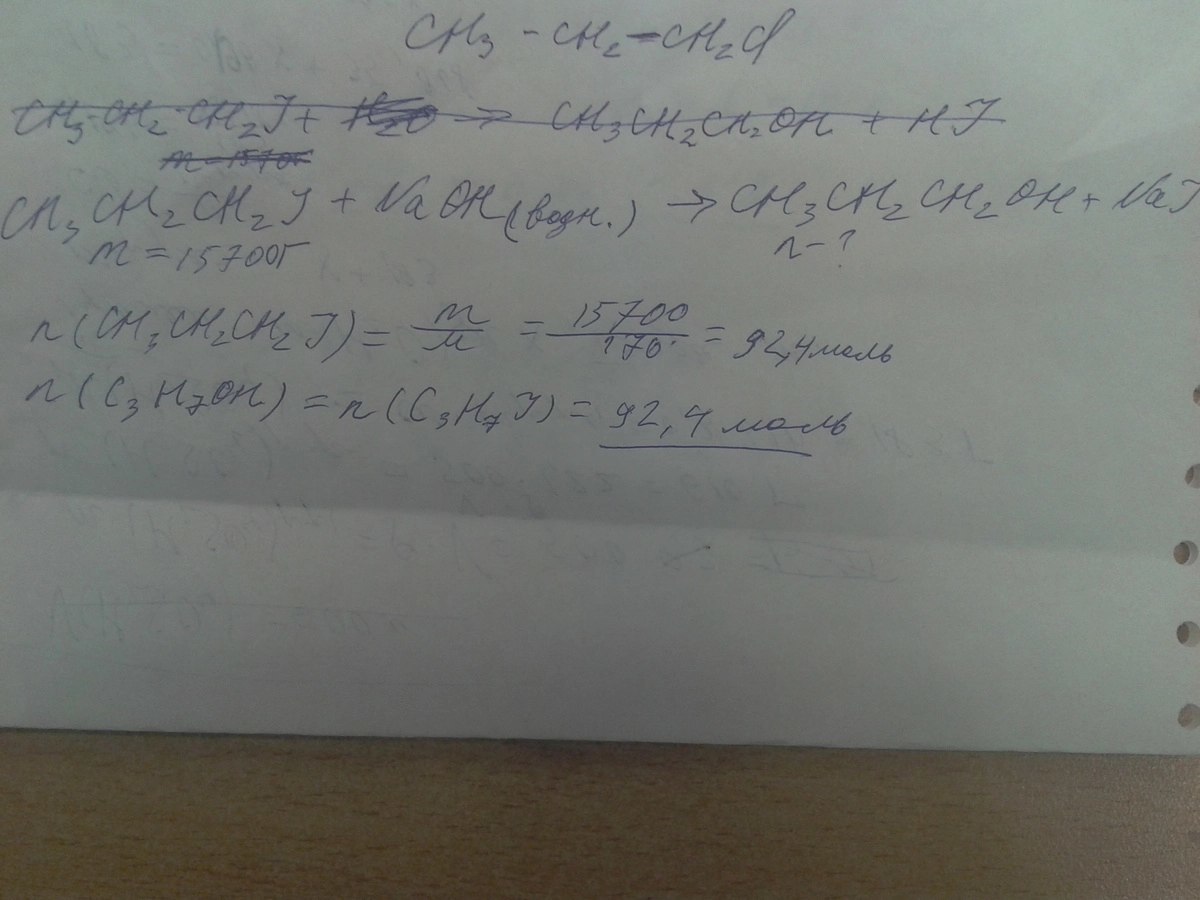 CH₃ - CH₂ - CH₂Cl
CH₃-CH₂-CH₂J + H₂O → CH₃CH₂CH₂OH + HJ
m = 15700г
CH₃CH₂CH₂J + NaOH (водн.) → CH₃CH₂CH₂OH + NaJ
m = 15700г n - ?
n(CH₃CH₂CH₂J) = m/M = 15700/170 = 92,4 моль
n(C₃H₇OH) = n(C₃H₇J) = 92,4 моль